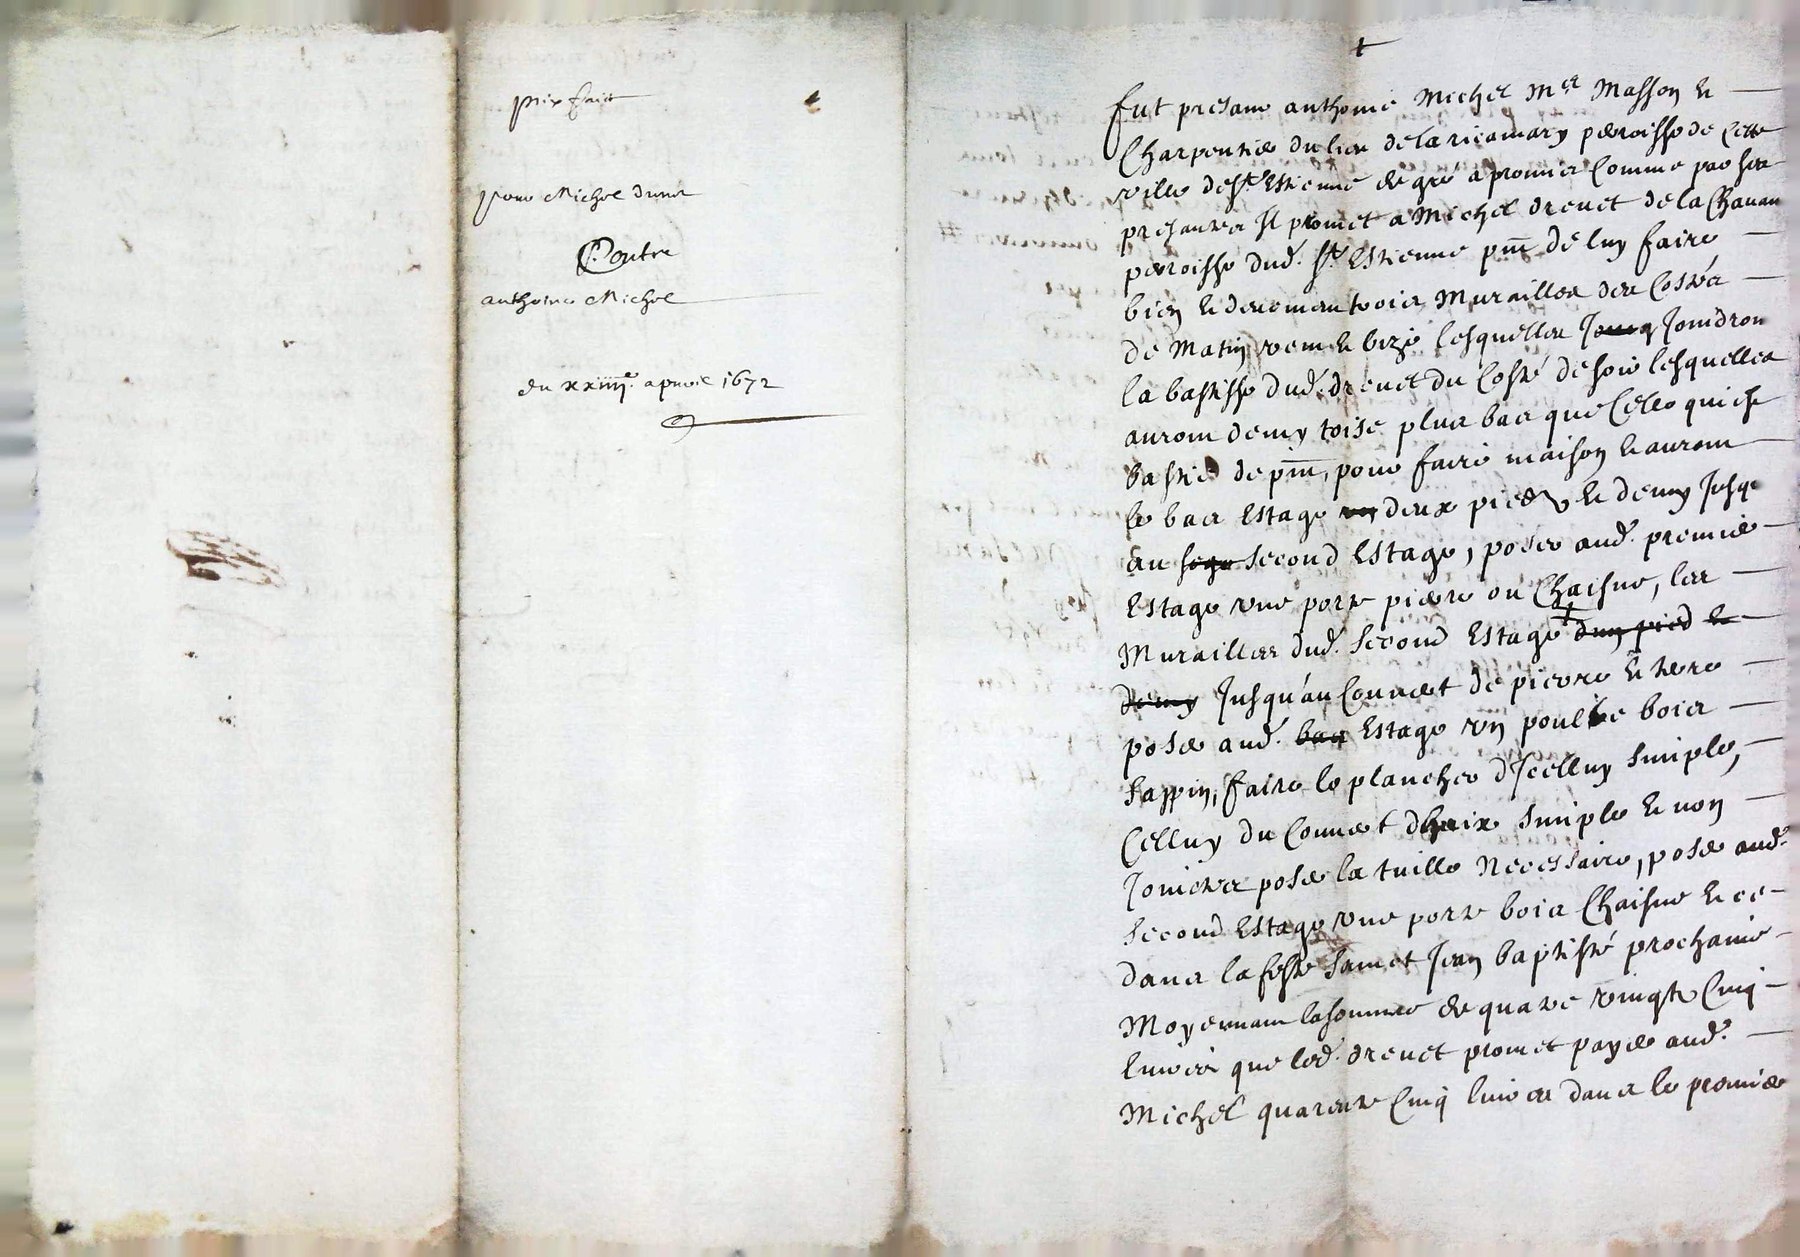 prix fait
pour Michel drevet
Contre
anthoine Michel
du xxiiiie. apvril 1672
fut presant anthoine Michel Mer Masson et
Charpentier du lieu de la ricamary parroisse de Cette
ville de St. Estienne de gré a promis Comme par ses
presantes Il promet a Michel drevet de la Chavan
parroisse dud. St. Estienne pnt de luy faire
bien et deuement trois Murailles des Costés
de Matin vent et bize lesquelles Joindron
la bastisse dud. drevet du Costé de soir lesquelles
auront demy toise plus bas que Celle qui est
bastie de pnt, pour faire maison et auront
le bas Estage deux pieds et demy Jusqe
au second Estage, poser aud. premier
Estage une porte pierre ou Chaisne, les
Murailles dud. second Estage dun pied et
demy Jusquau Couvert de pierre et terre
poser aud. bas Estage un poultre bois
sappin, faire le plancher dIcelluy simple,
Celluy du Couvert dhaix simple et non
Joinctes poser la tuille Necessaire, poser aud.
second Estage une porte bois Chaisne et ce
dans la feste sainct Jean baptiste prochaine
Moyennant la somme de quatre vingts Cinq
livres que led. drevet promet payer aud.
Michel quarante Cinq livres dans le premier